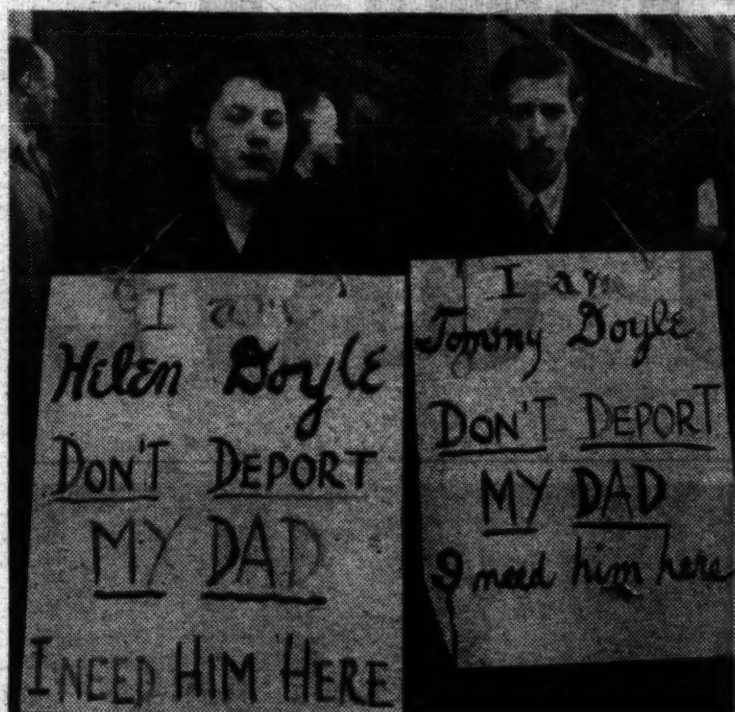 I am
Helen Doyle
DON'T DEPORT
MY DAD
I NEED HIM HERE
I am
Tommy Doyle
DON'T DEPORT
MY DAD
I need him here